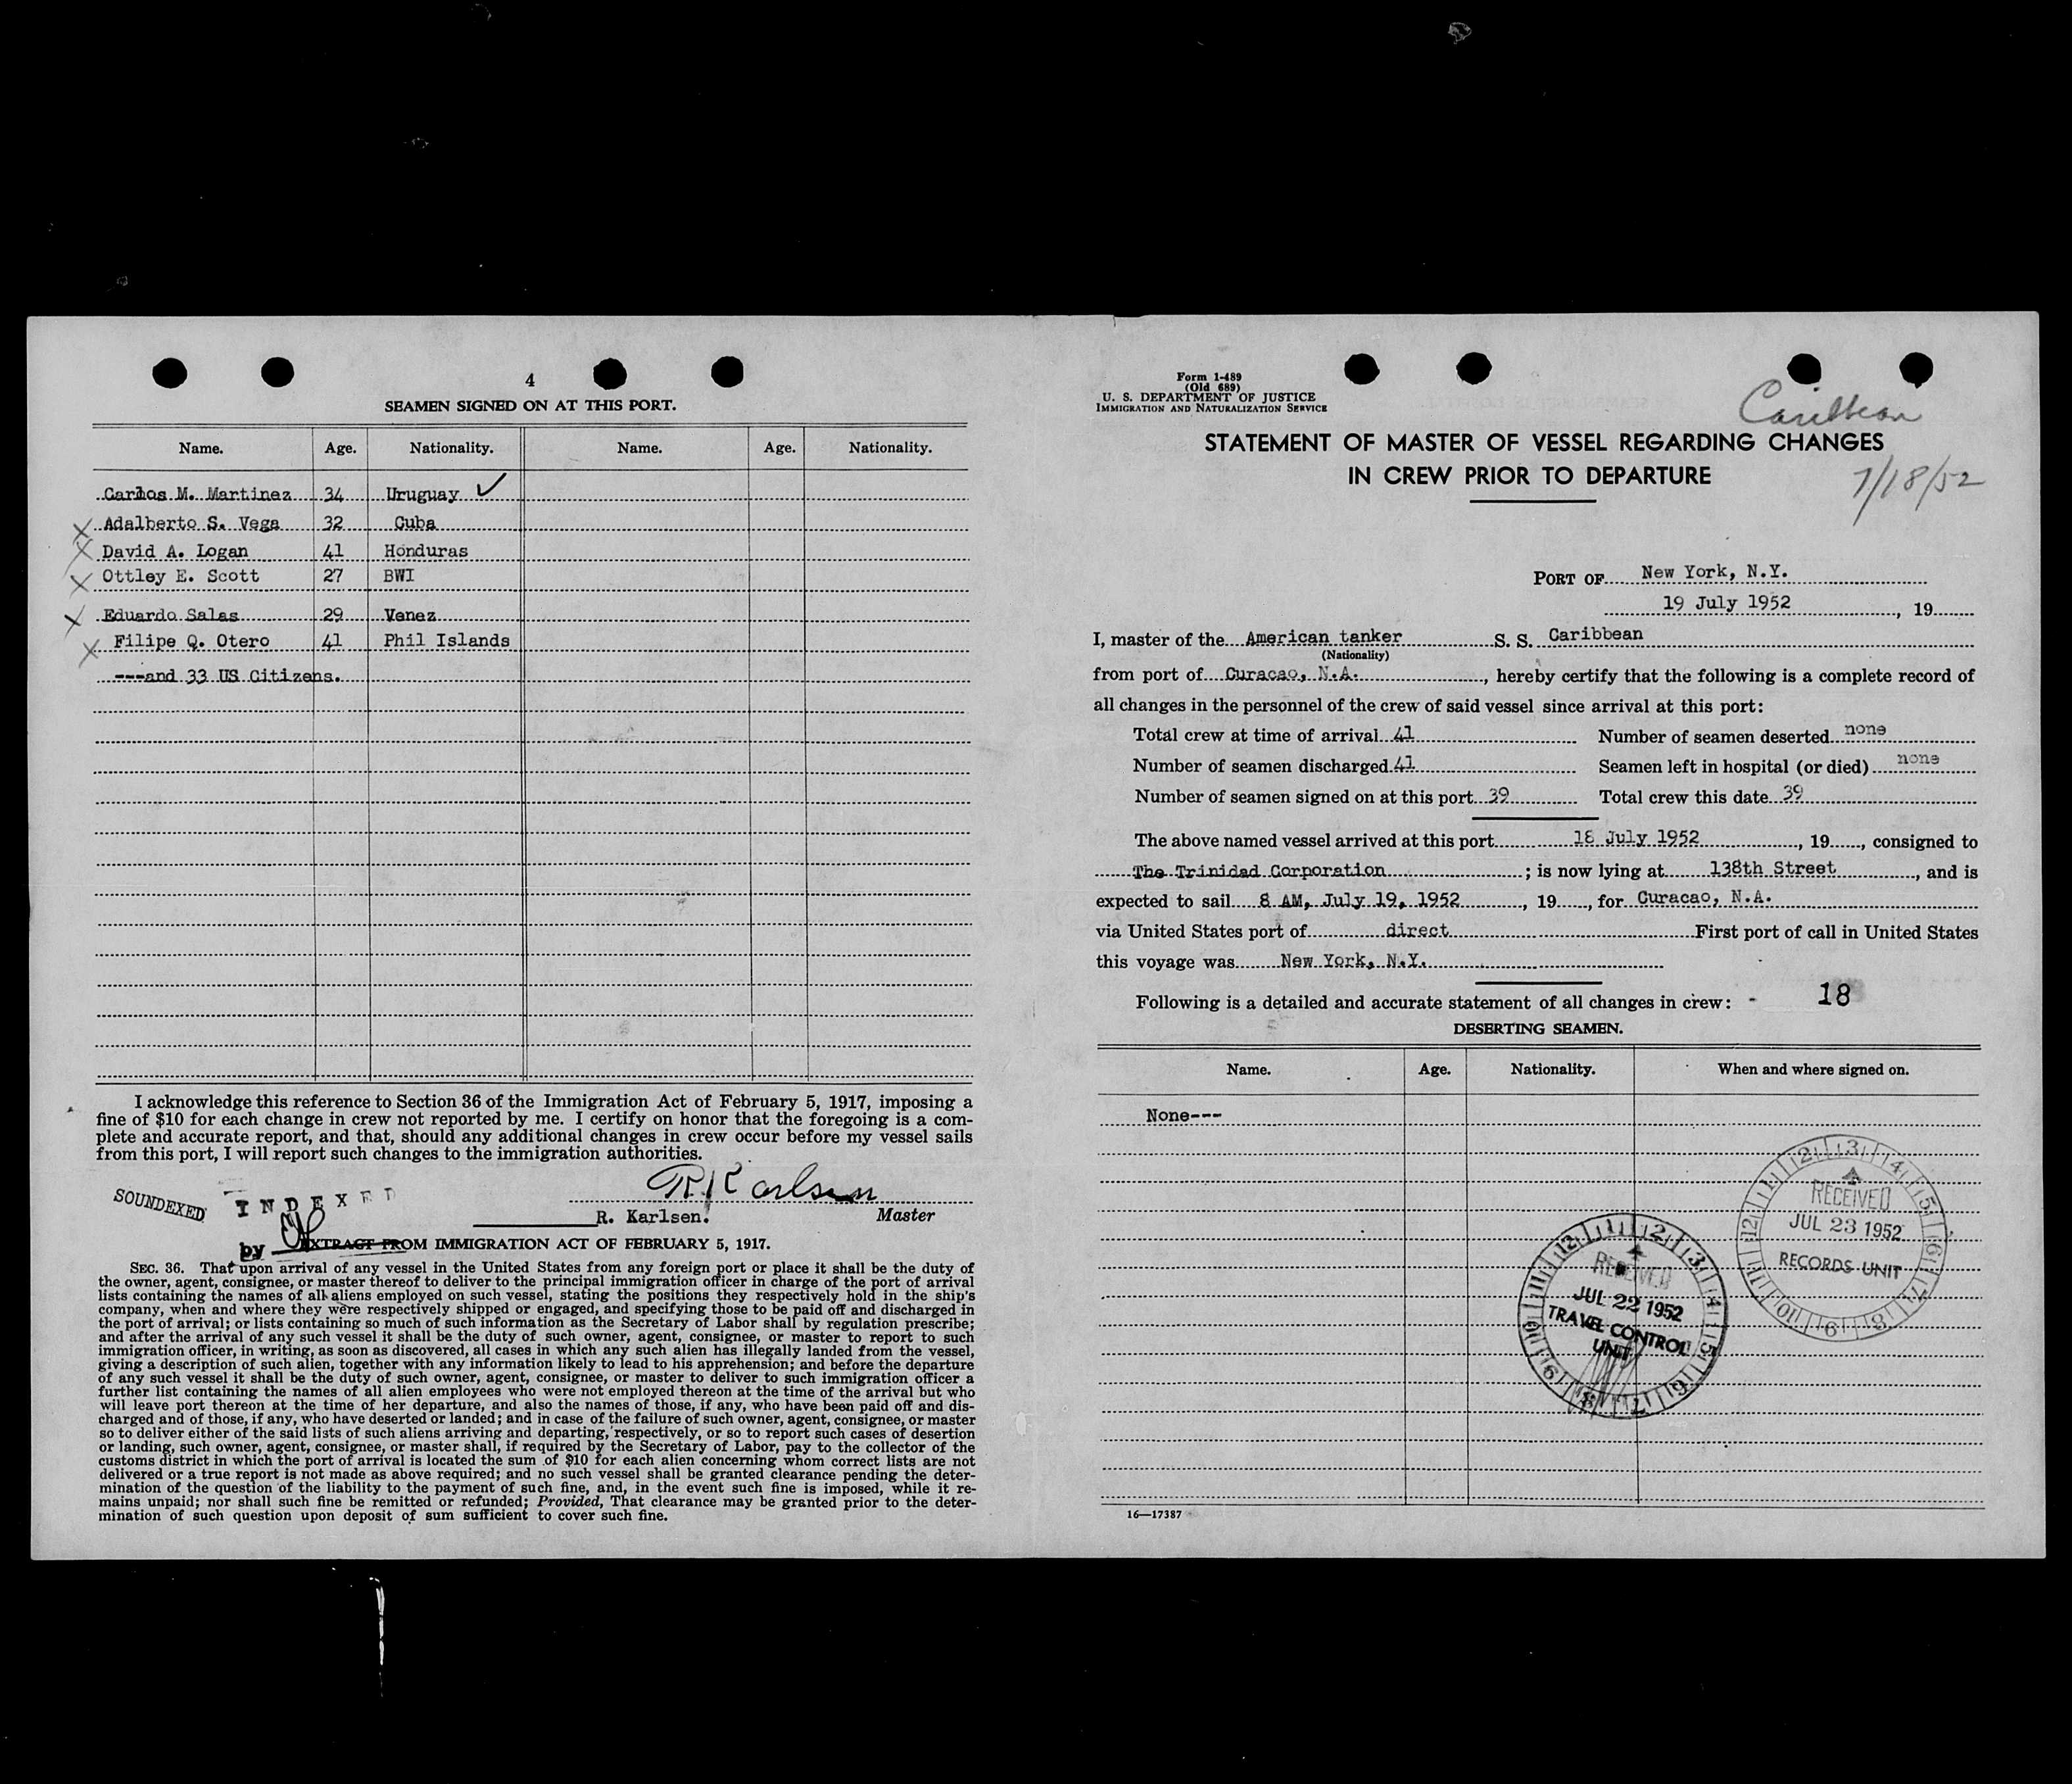 4
SEAMEN SIGNED ON AT THIS PORT.
Name. Age. Nationality. Name. Age. Nationality.
Carlos M. Martinez 34 Uruguay ✓
X Adalberto S. Vega 32 Cuba
X David A. Logan 41 Honduras
X Ottley E. Scott 27 BWI
X Eduardo Salas 29 Venez
X Filipe Q. Otero 41 Phil Islands
---and 33 US Citizens.
I acknowledge this reference to Section 36 of the Immigration Act of February 5, 1917, imposing a
fine of $10 for each change in crew not reported by me. I certify on honor that the foregoing is a com-
plete and accurate report, and that, should any additional changes in crew occur before my vessel sails
from this port, I will report such changes to the immigration authorities.
R Karlsen
SOUNDEXED INDEXED
R. Karlsen. Master
by
EXTRACT FROM IMMIGRATION ACT OF FEBRUARY 5, 1917.
SEC. 36. That upon arrival of any vessel in the United States from any foreign port or place it shall be the duty of
the owner, agent, consignee, or master thereof to deliver to the principal immigration officer in charge of the port of arrival
lists containing the names of all aliens employed on such vessel, stating the positions they respectively hold in the ship's
company, when and where they were respectively shipped or engaged, and specifying those to be paid off and discharged in
the port of arrival; or lists containing so much of such information as the Secretary of Labor shall by regulation prescribe;
and after the arrival of any such vessel it shall be the duty of such owner, agent, consignee, or master to report to such
immigration officer, in writing, as soon as discovered, all cases in which any such alien has illegally landed from the vessel,
giving a description of such alien, together with any information likely to lead to his apprehension; and before the departure
of any such vessel it shall be the duty of such owner, agent, consignee, or master to deliver to such immigration officer a
further list containing the names of all alien employees who were not employed thereon at the time of the arrival but who
will leave port thereon at the time of her departure, and also the names of those, if any, who have been paid off and dis-
charged and of those, if any, who have deserted or landed; and in case of the failure of such owner, agent, consignee, or master
so to deliver either of the said lists of such aliens arriving and departing, respectively, or so to report such cases of desertion
or landing, such owner, agent, consignee, or master shall, if required by the Secretary of Labor, pay to the collector of the
customs district in which the port of arrival is located the sum of $10 for each alien concerning whom correct lists are not
delivered or a true report is not made as above required; and no such vessel shall be granted clearance pending the deter-
mination of the question of the liability to the payment of such fine, and, in the event such fine is imposed, while it re-
mains unpaid; nor shall such fine be remitted or refunded; Provided, That clearance may be granted prior to the deter-
mination of such question upon deposit of sum sufficient to cover such fine.
Form I-489
(Old 689)
U. S. DEPARTMENT OF JUSTICE
IMMIGRATION AND NATURALIZATION SERVICE
Caribbean
STATEMENT OF MASTER OF VESSEL REGARDING CHANGES
IN CREW PRIOR TO DEPARTURE
7/18/52
PORT OF New York, N.Y.
19 July 1952, 19
I, master of the American tanker S. S. Caribbean
(Nationality)
from port of Curacao, N.A., hereby certify that the following is a complete record of
all changes in the personnel of the crew of said vessel since arrival at this port:
Total crew at time of arrival 41 Number of seamen deserted none
Number of seamen discharged 41 Seamen left in hospital (or died) none
Number of seamen signed on at this port 39 Total crew this date 39
The above named vessel arrived at this port 18 July 1952, 19, consigned to
The Trinidad Corporation; is now lying at 138th Street, and is
expected to sail 8 AM, July 19, 1952, 19, for Curacao, N.A.
via United States port of direct First port of call in United States
this voyage was New York, N.Y.
Following is a detailed and accurate statement of all changes in crew: - 18
DESERTING SEAMEN.
Name. Age. Nationality. When and where signed on.
None---
RECEIVED
JUL 23 1952
RECORDS UNIT
1 2 3 4 5 6 7 8 9 10 11 12
RECEIVED
JUL 22 1952
TRAVEL CONTROL
UNIT
1 2 3 4 5 6 7 8 9 10 11 12
16—17387